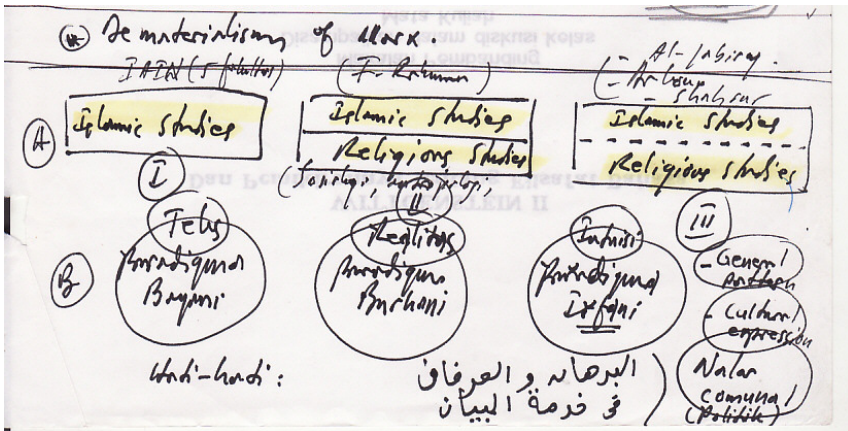 Dematerialism of Marx.
IAIN (5 fakultas) (F. Rahman) - Al-Jabiry.
- Arkoun
- Shahrur
A Islamic Studies Islamic Studies Islamic Studies
Religious Studies Religious Studies
I (Sosiologi, Antropologi)
II III
Teks Realitas Intuisi
B Paradigma Bayani Paradigma Burhani Paradigma Irfani
- General pattern
- Cultural expression
Hati-hati: البرهان و العرفان
في خدمة البيان
Nalar
comunal
(Politik)